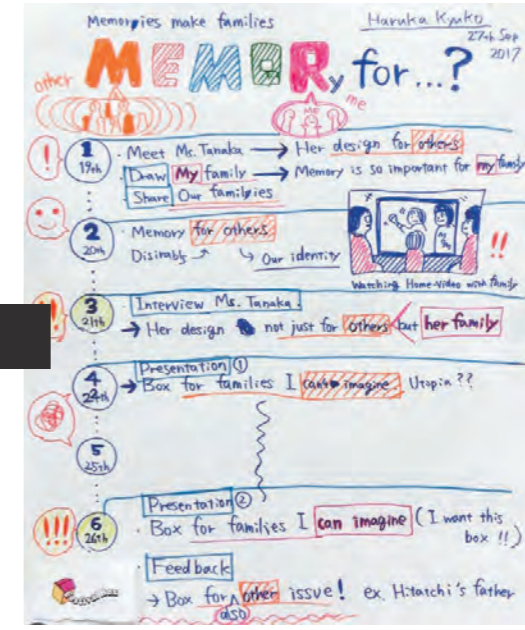 Memorpies make families
Haruka Kyuko
27th Sep
2017
other
MEMORY for...?
me
ME
! 1 19th
· Meet Ms. Tanaka → Her design for others
Draw My family → Memory is so important for my family
Share Our familyies
2 20th
· Memory for others
Our identity
!!
Watching Home-Video with family
!! 3 21th
Interview Ms. Tanaka.
→ Her design not just for others but her family
4 24th
Presentation ①
→ Box for families I can't imagine, Utopia??
5 25th
!!! 6 26th
Presentation ②
· Box for families I can imagine (I want this box !!)
Feedback
→ Box for also other issue! ex. Hitatchi's father